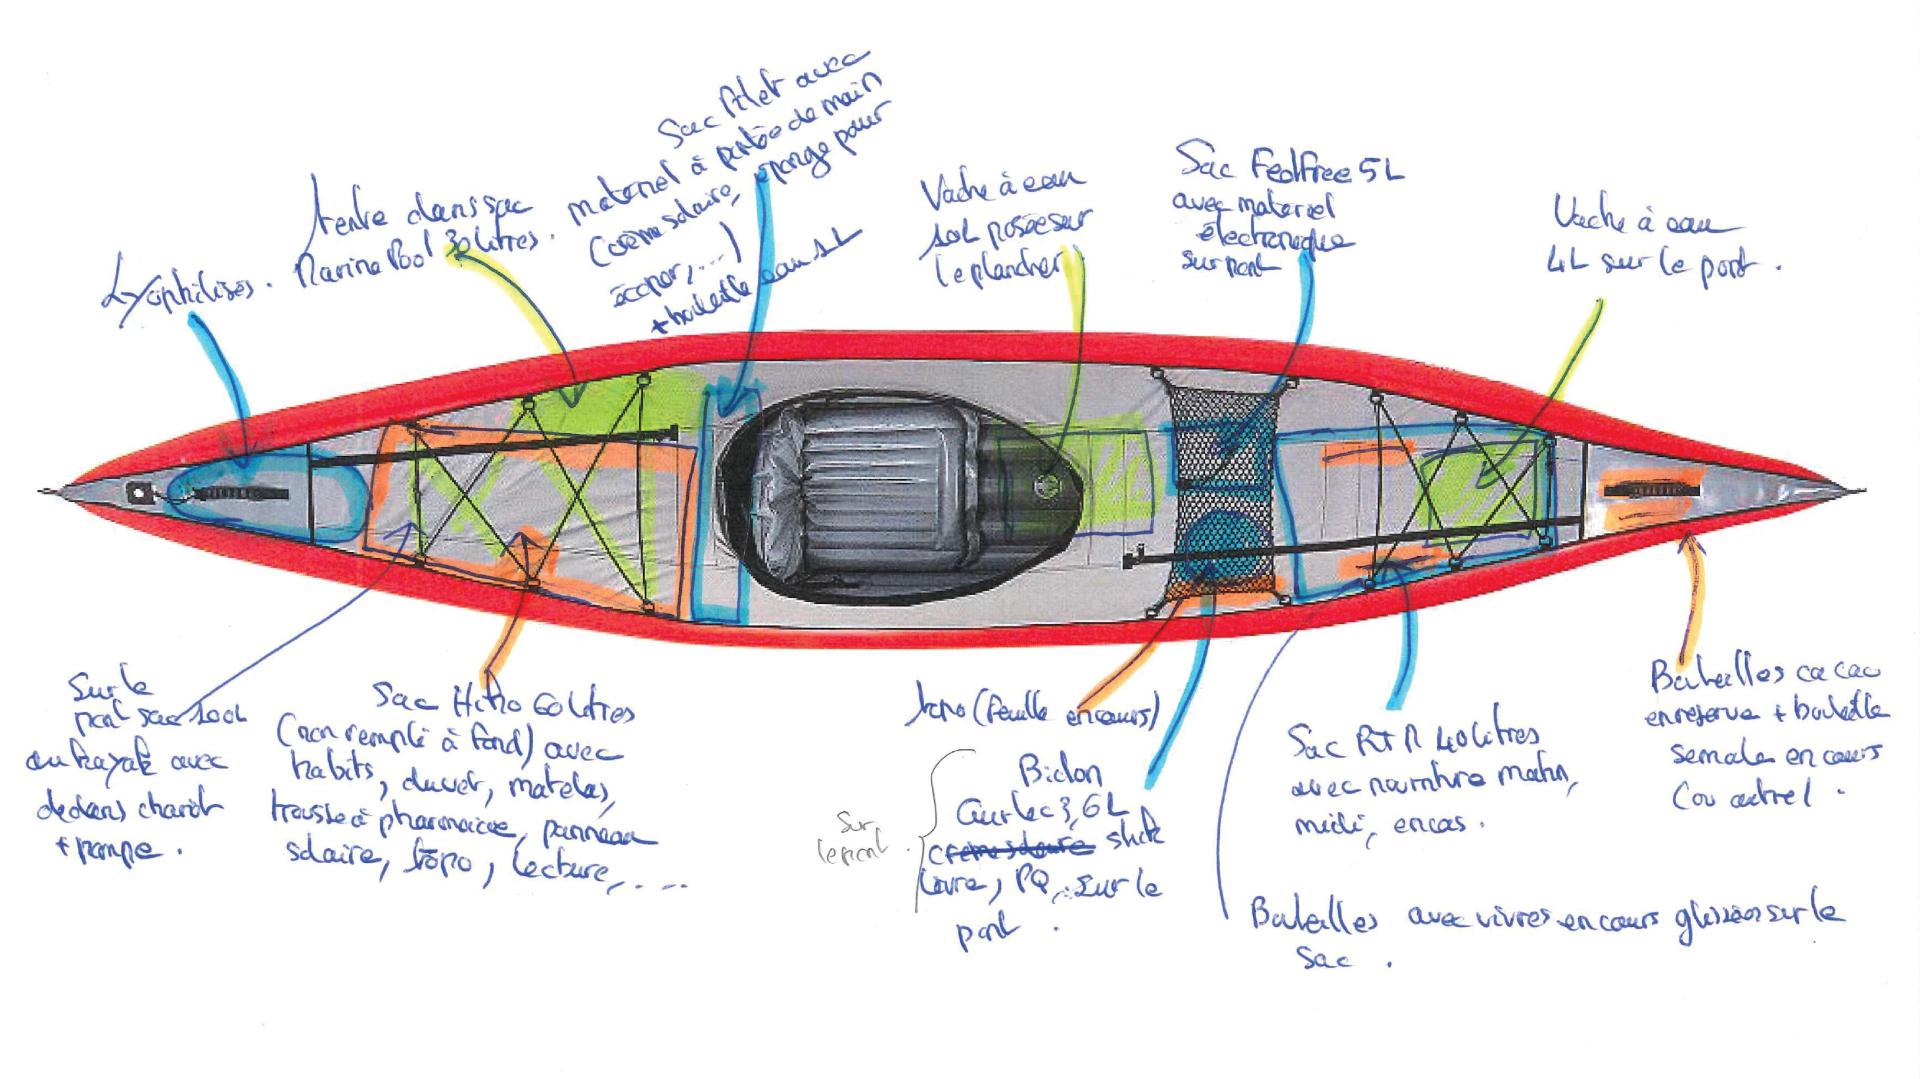 Lyophilisés.
tente dans sac
MarinePool 30 litres.
Sac filet avec
materiel à portée de main
(crème solaire, éponge pour
écoper,...)
+ bouteille eau 1L
Vache à eau
10L posée sur
le plancher
Sac FeelFree 5L
avec materiel
électronique
sur pont
Vache à eau
4L sur le pont.
Sur le
pont sac 100L
du kayak avec
dedans chariot
+ pompe.
Sac Hiko 60 litres
(non rempli à fond) avec
habits, duvet, matelas,
trousse à pharmacie, panneau
solaire, topo, lecture, ....
topo (feuille en cours)
Sur
le pont.
Bidon
Curtec 3,6L
creme solaire stick
lèvre, PQ, sur le
pont.
Sac RTM 40 litres
avec nourriture matin,
midi, encas.
Bouteilles cacao
en reserve + bouteille
semoule en cours
(ou autre).
Bouteilles avec vivres en cours glissées sur le
sac.